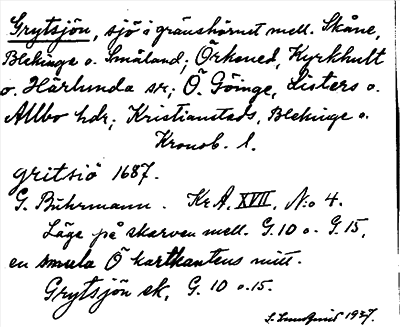 Grytsjön, sjö i gränshörnet mell. Skåne,
Blekinge o. Småland; Örkened, Kyrkhult
o. Härlunda sr; Ö. Göinge, Listers o.
Allbo hdr; Kristianstads, Blekinge o.
Kronob. l.
gritsiö 1687.
G. Buhrmann. Kr.A. XVII, N:o 4.
Läge på skarven mell. G.10 o. G.15,
en smula Ö kartkantens mitt.
Grytsjön ek, G. 10 o. 15.
S. Lundquist 1937.